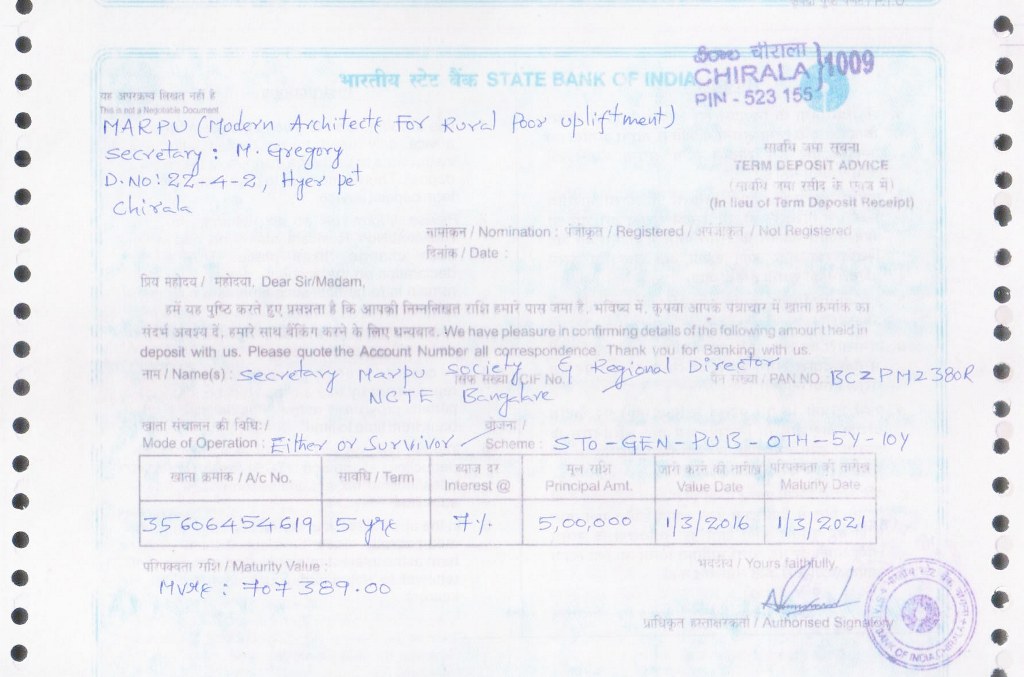 చీరాల चीराला
भारतीय स्टेट बैंक STATE BANK OF INDIA CHIRALA 1009
PIN - 523 155
यह अपरक्राम्य लिखत नहीं है
This is not a Negotiable Document
MARPU (Modern Architects For Rural Poor upliftment)
Secretary : M. Gregory
D.NO: 22-4-2, Hyer pet
Chirala
सावधि जमा सूचना
TERM DEPOSIT ADVICE
(सावधि जमा रसीद के एवज में)
(In lieu of Term Deposit Receipt)
नामांकन / Nomination : पंजीकृत / Registered / अपंजीकृत / Not Registered
दिनांक / Date :
प्रिय महोदय / महोदया, Dear Sir/Madam,
हमें यह पुष्टि करते हुए प्रसन्नता है कि आपकी निम्नलिखित राशि हमारे पास जमा है. भविष्य में, कृपया आपके पत्राचार में खाता क्रमांक का
संदर्भ अवश्य दें. हमारे साथ बैंकिंग करने के लिए धन्यवाद. We have pleasure in confirming details of the following amount held in
deposit with us. Please quote the Account Number all correspondence. Thank you for Banking with us.
नाम / Name(s) : Secretary Marpu Society & Regional Director
NCTE Bangalore
सिफ संख्या / CIF No. पैन संख्या / PAN NO. BCZPM2380R
खाता संचालन की विधि: / योजना /
Mode of Operation : Either or Survivor Scheme : STO-GEN-PUB-OTH-5Y-10Y
खाता क्रमांक / A/c No. सावधि / Term ब्याज दर Interest @ मूल राशि Principal Amt. जारी करने की तारीख Value Date परिपक्वता की तारीख Maturity Date
35606454619 5 yrs 7% 5,00,000 1/3/2016 1/3/2021
परिपक्वता राशि / Maturity Value : भवदीय / Yours faithfully,
MVRs : 707389.00
प्राधिकृत हस्ताक्षरकर्ता / Authorised Signatory
BANK OF INDIA, CHIRALA